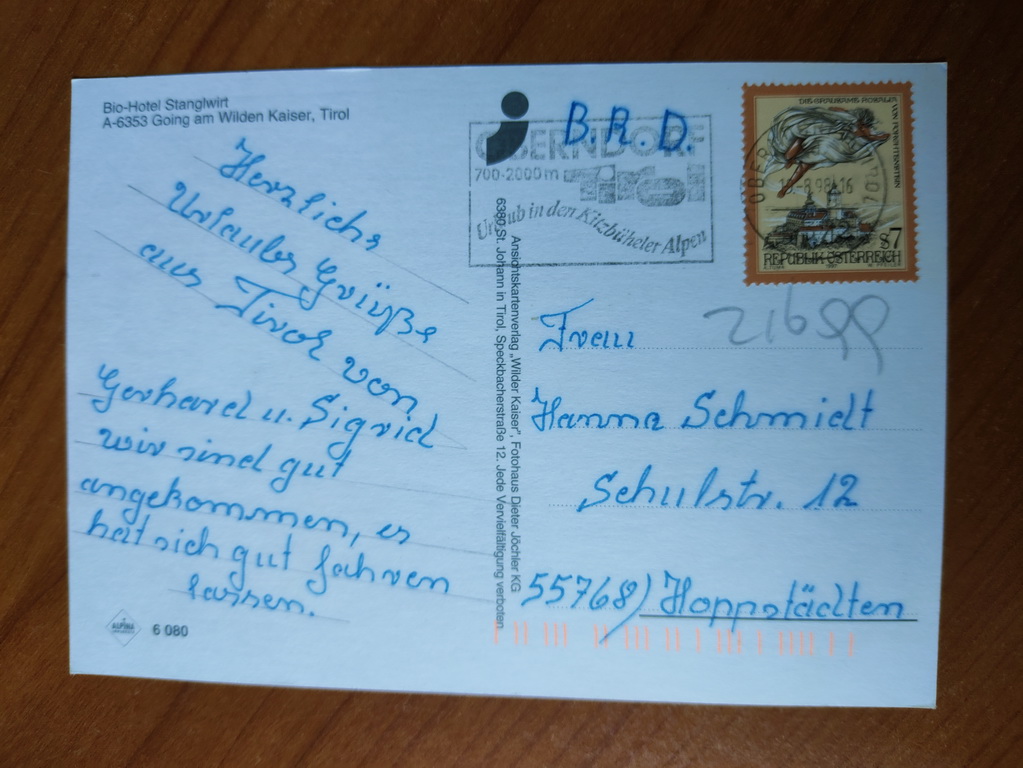 Bio-Hotel Stanglwirt
A-6353 Going am Wilden Kaiser, Tirol
Herzliche
Urlaubs Grüße
aus Tirol von
Gerhard u. Sigrid
wir sind gut
angekommen, es
hat sich gut fahren
lassen.
ALPINA
6 080
6380 St. Johann in Tirol, Speckbacherstraße 12. Jede Vervielfältigung verboten.
Ansichtskartenverlag „Wilder Kaiser", Fotohaus Dieter Jöchler KG
B.R.D.
OBERNDORF
700-2000 m Tirol
Urlaub in den Kitzbüheler Alpen
DIE GRAUSAME ROSALIA
VON FORCHTENSTEIN
8.98-16
S7
REPUBLIK ÖSTERREICH
1997
21699
Frau
Hanna Schmidt
Schulstr. 12
55768) Hoppstädten